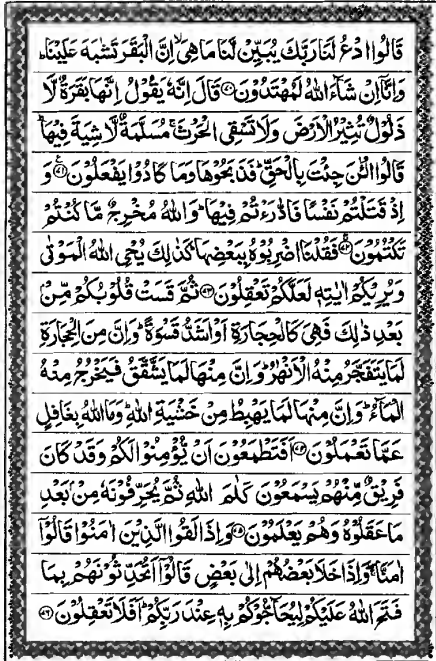 قَالُوا ادْعُ لَنَا رَبَّكَ يُبَيِّنْ لَّنَا مَا هِىَ ۙ اِنَّ الْبَقَرَ تَشٰبَهَ عَلَيْنَا ؕ
وَاِنَّاۤ اِنْ شَآءَ اللّٰهُ لَمُهْتَدُوْنَ ۝۷۰ قَالَ اِنَّهٗ يَقُوْلُ اِنَّهَا بَقَرَةٌ لَّا
ذَلُوْلٌ تُثِيْرُ الْاَرْضَ وَلَا تَسْقِى الْحَرْثَ ۚ مُسَلَّمَةٌ لَّا شِيَةَ فِيْهَا ؕ
قَالُوا الْئٰنَ جِئْتَ بِالْحَقِّ ؕ فَذَبَحُوْهَا وَمَا كَادُوْا يَفْعَلُوْنَ ۝۷۱ وَ
اِذْ قَتَلْتُمْ نَفْسًا فَادّٰرَءْتُمْ فِيْهَا ؕ وَاللّٰهُ مُخْرِجٌ مَّا كُنْتُمْ
تَكْتُمُوْنَ ۝۷۲ فَقُلْنَا اضْرِبُوْهُ بِبَعْضِهَا ؕ كَذٰلِكَ يُحْىِ اللّٰهُ الْمَوْتٰى
وَيُرِيْكُمْ اٰيٰتِهٖ لَعَلَّكُمْ تَعْقِلُوْنَ ۝۷۳ ثُمَّ قَسَتْ قُلُوْبُكُمْ مِّنْۢ
بَعْدِ ذٰلِكَ فَهِىَ كَالْحِجَارَةِ اَوْ اَشَدُّ قَسْوَةً ؕ وَاِنَّ مِنَ الْحِجَارَةِ
لَمَا يَتَفَجَّرُ مِنْهُ الْاَنْهٰرُ ؕ وَاِنَّ مِنْهَا لَمَا يَشَّقَّقُ فَيَخْرُجُ مِنْهُ
الْمَآءُ ؕ وَاِنَّ مِنْهَا لَمَا يَهْبِطُ مِنْ خَشْيَةِ اللّٰهِ ؕ وَمَا اللّٰهُ بِغَافِلٍ
عَمَّا تَعْمَلُوْنَ ۝۷۴ اَفَتَطْمَعُوْنَ اَنْ يُّؤْمِنُوْا لَكُمْ وَقَدْ كَانَ
فَرِيْقٌ مِّنْهُمْ يَسْمَعُوْنَ كَلٰمَ اللّٰهِ ثُمَّ يُحَرِّفُوْنَهٗ مِنْۢ بَعْدِ
مَا عَقَلُوْهُ وَهُمْ يَعْلَمُوْنَ ۝۷۵ وَاِذَا لَقُوا الَّذِيْنَ اٰمَنُوْا قَالُوْۤا
اٰمَنَّا ۖۚ وَاِذَا خَلَا بَعْضُهُمْ اِلٰى بَعْضٍ قَالُوْۤا اَتُحَدِّثُوْنَهُمْ بِمَا
فَتَحَ اللّٰهُ عَلَيْكُمْ لِيُحَآجُّوْكُمْ بِهٖ عِنْدَ رَبِّكُمْ ؕ اَفَلَا تَعْقِلُوْنَ ۝۷۶